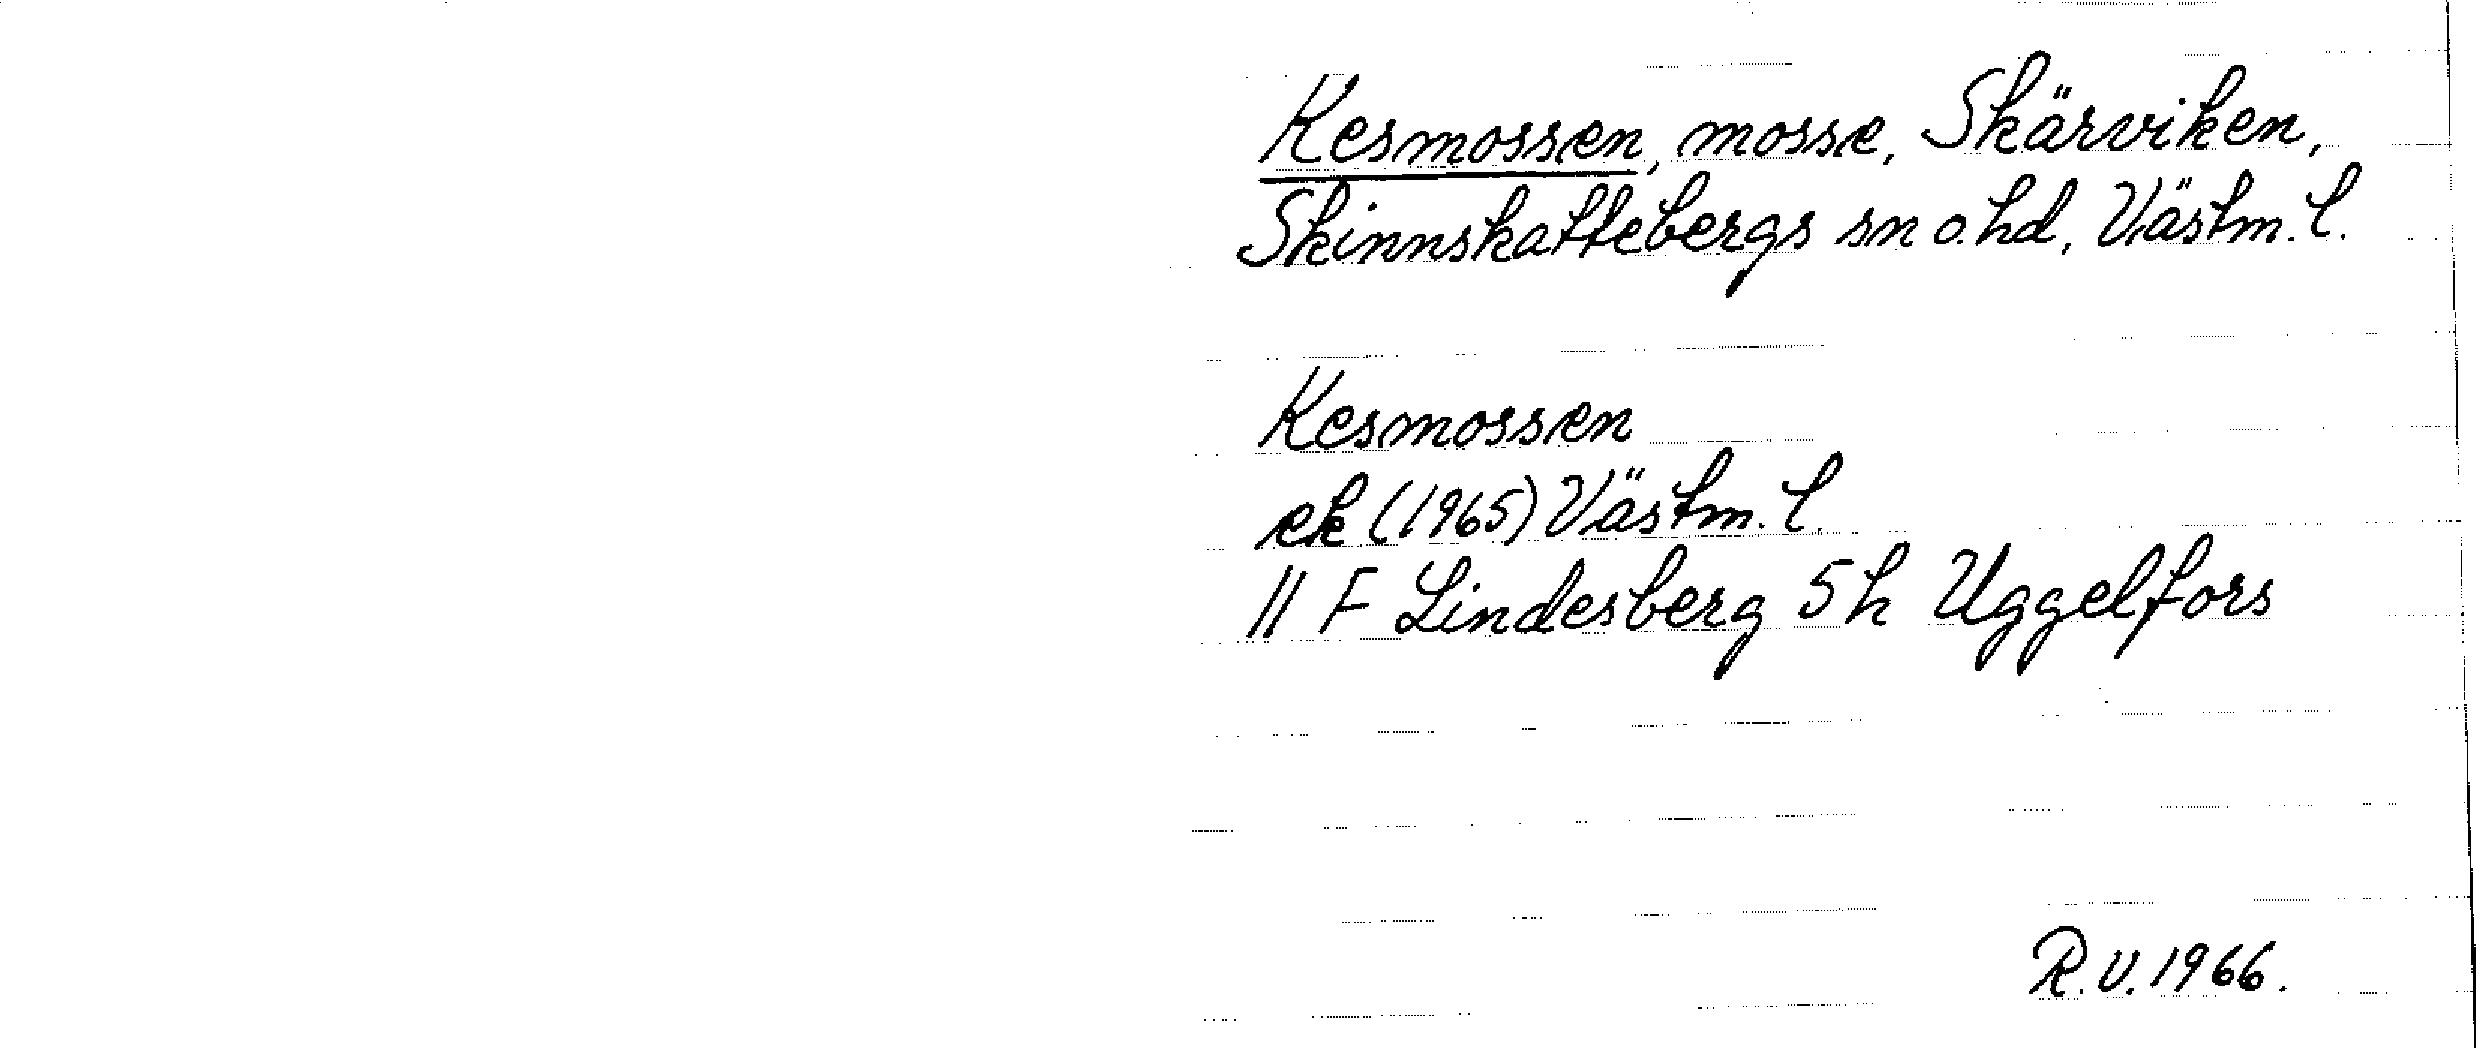 Kesmossen, mosse, Skärviken,
Skinnskattebergs sn o. hd, Västm. l.
Kesmossen
ek (1965) Västm. l.
11 F Lindesberg 5 h Uggelfors
R.V. 1966.